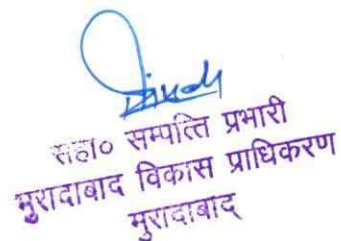 सहा० सम्पत्ति प्रभारी
मुरादाबाद विकास प्राधिकरण
मुरादाबाद्